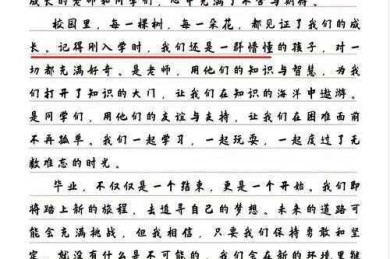 成长的老师和同学们，心中充满了不舍与期待。
校园里，每一棵树，每一朵花，都见证了我们的成
长。记得刚入学时，我们还是一群懵懂的孩子，对一
切都充满好奇。是老师，用他们的知识与智慧，为我
们打开了知识的大门，让我们在知识的海洋中遨游。
是同学们，用他们的友谊与支持，让我们在困难面前
不再孤单。我们一起学习，一起玩耍，一起度过了无
数难忘的时光。
毕业，不仅仅是一个结束，更是一个开始。我们即
将踏上新的旅程，去追寻自己的梦想。未来的道路可
能会充满挑战，但我相信，只要我们保持勇敢和坚
定，就没有什么是不可能的，我们会在新的环境里继